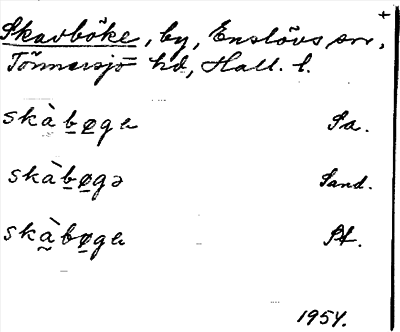 +
Skavböke, by, Enslövs sn,
Tönnersjö hd, Hall. l.
skàb̲ø̲gɐ Sa.
skàb̲ø̲gə Sand.
skà̰bø̲gɐ St.
1954.